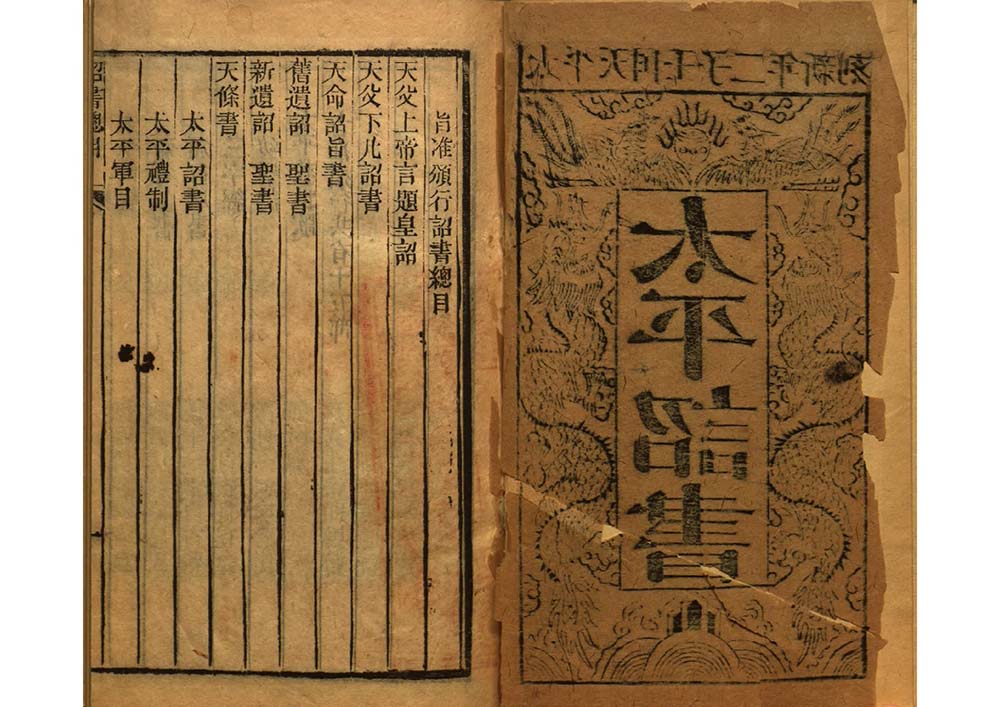 太平天囯壬子二年新刻
太平詔書
旨准頒行詔書總目
天父上帝言題皇詔
天父下凡詔書
天命詔旨書
舊遺詔 聖書
新遺詔 聖書
天條書
太平詔書
太平禮制
太平軍目
詔書總目